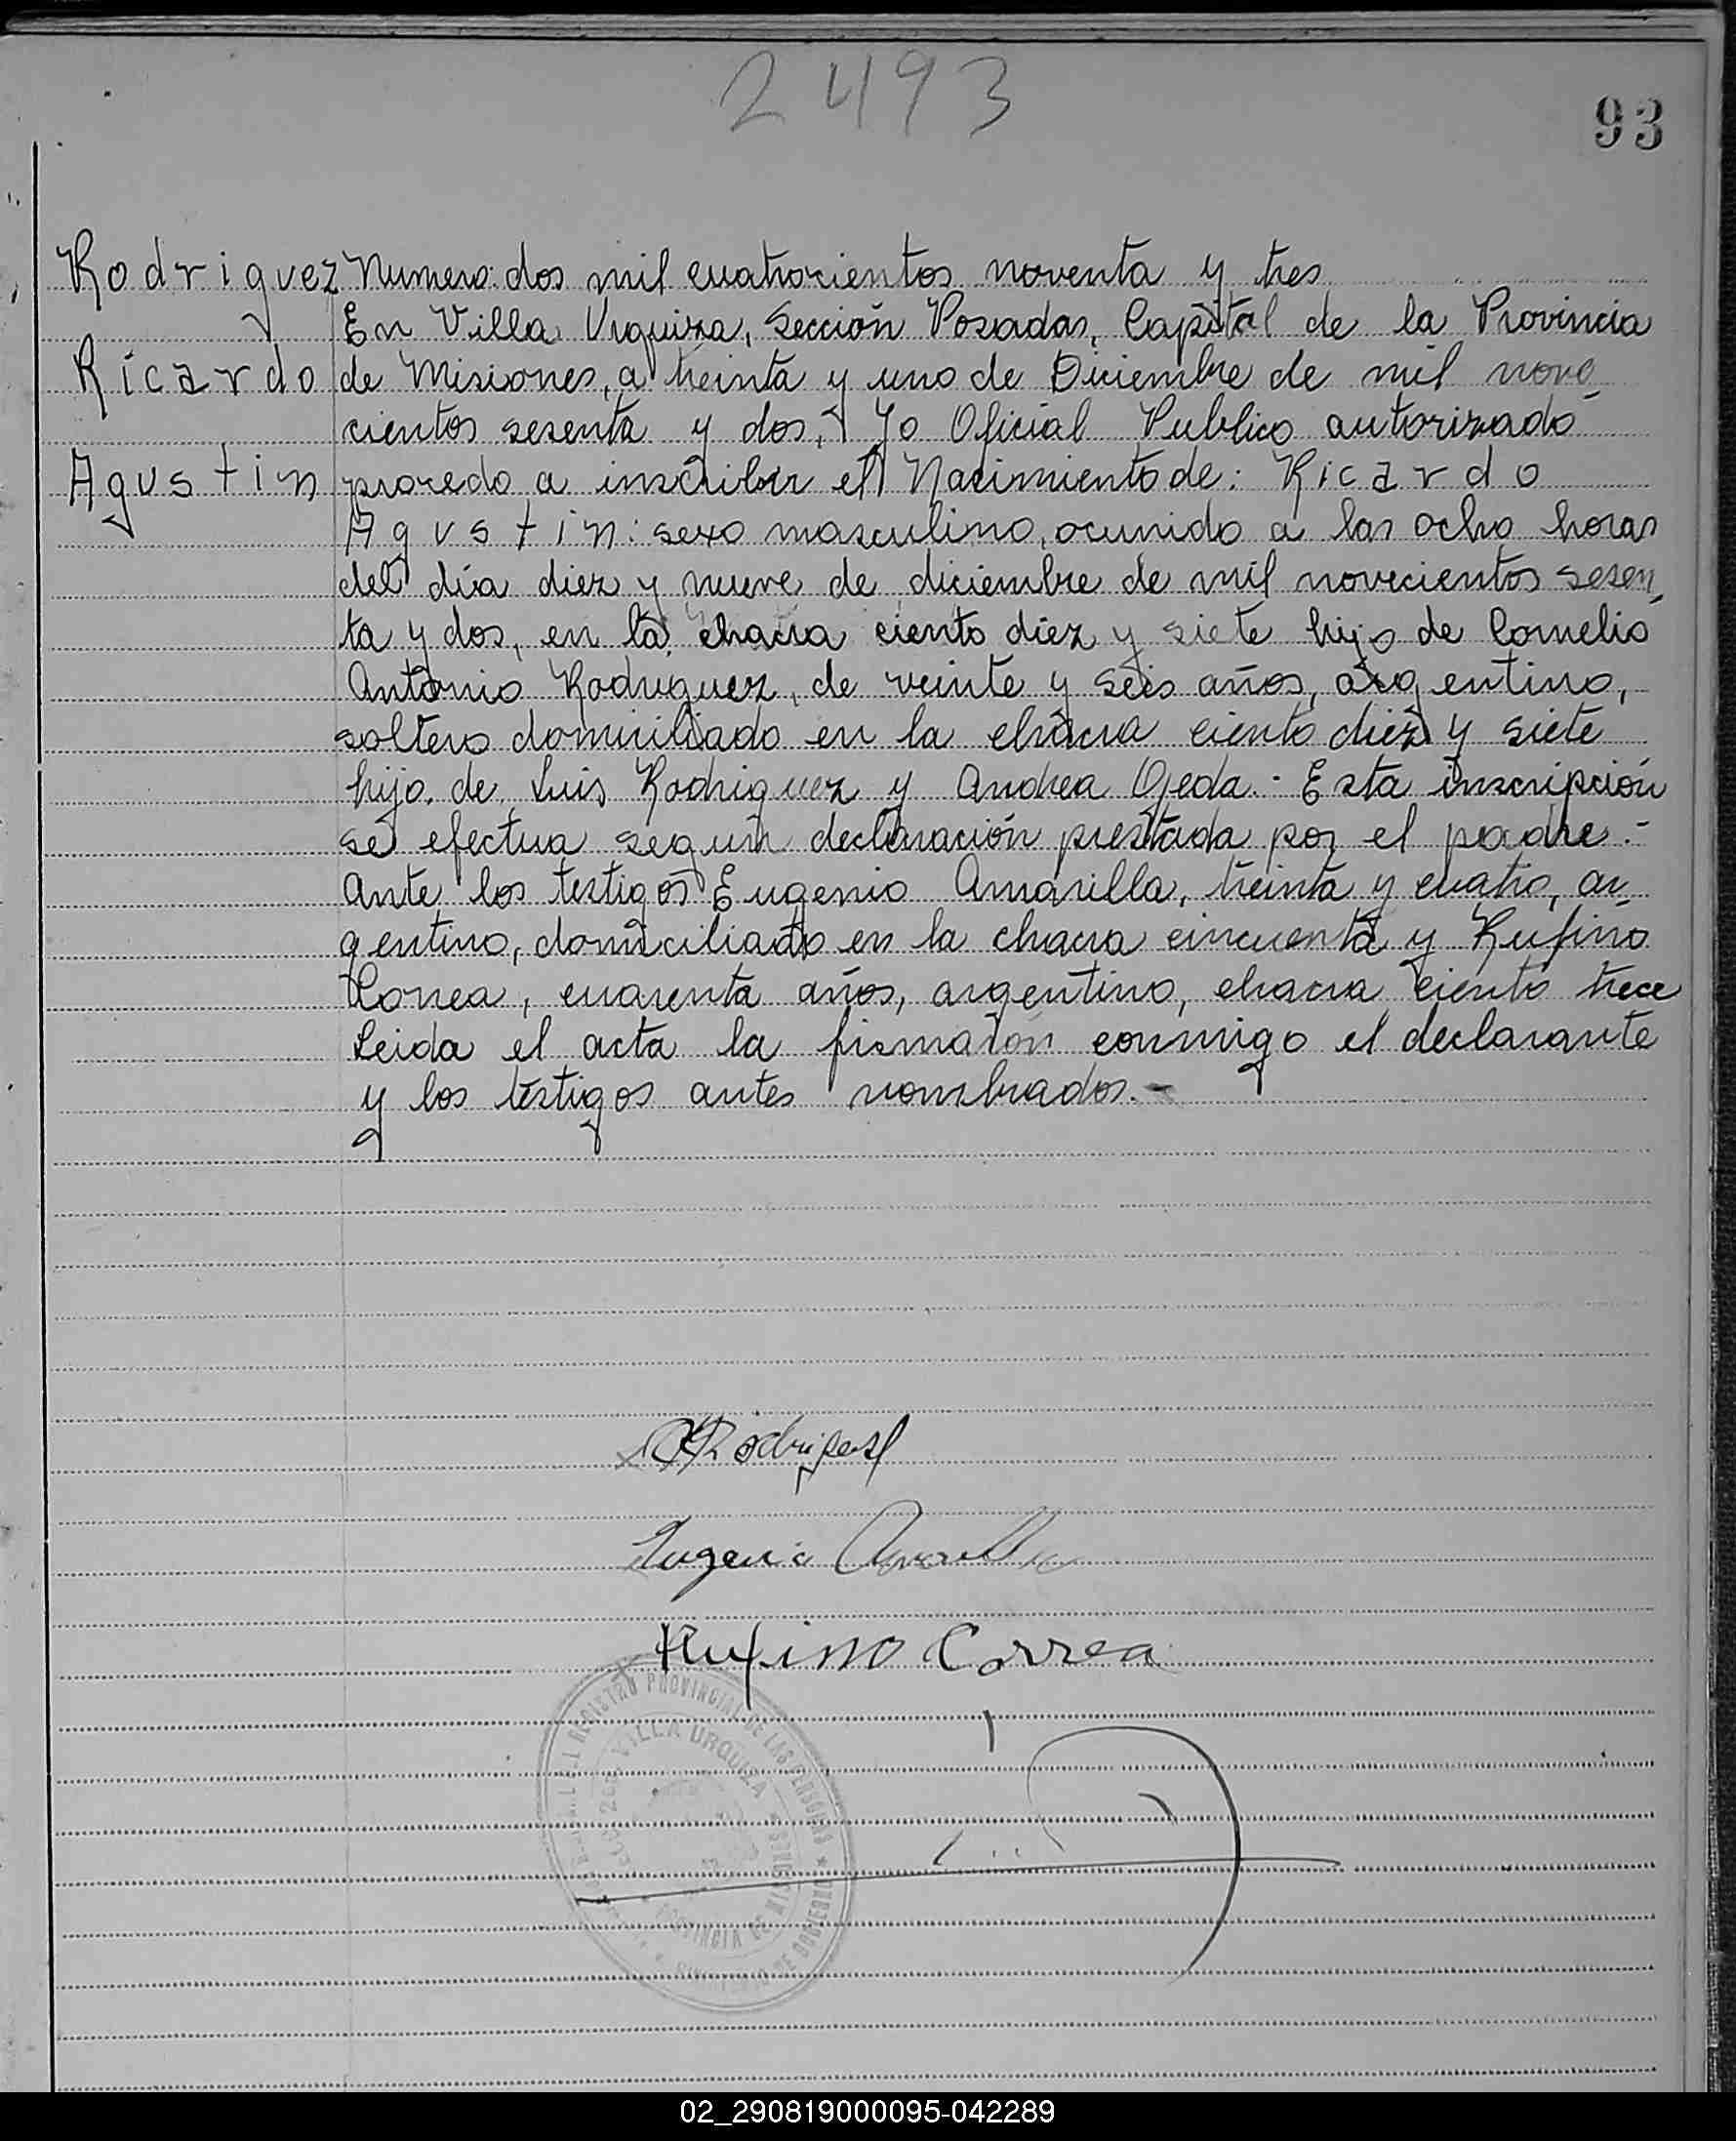 2493
93
Rodriguez Numero: dos mil cuatrocientos noventa y tres
En Villa Urquiza, Sección Posadas, Capital de la Provincia
Ricardo de Misiones, a treinta y uno de Diciembre de mil nove
cientos sesenta y dos, Yo Oficial Publico autorizado
Agustin procedo a inscribir el Nacimiento de: Ricardo
Agustin: sexo masculino, ocurrido a las ocho horas
del día diez y nueve de diciembre de mil novecientos sesen
ta y dos, en la chacra ciento diez y siete hijo de Cornelio
Antonio Rodriguez, de veinte y seis años, argentino,
soltero domiciliado en la chacra ciento diez y siete
hijo de Luis Rodriguez y Andrea Ojeda.- Esta inscripción
se efectua según declaración prestada por el padre.-
Ante los testigos Eugenio Amarilla, treinta y cuatro, ar
gentino, domiciliado en la chacra cincuenta y Rufino
Correa, cuarenta años, argentino, chacra ciento trece
Leida el acta la firmaron conmigo el declarante
y los testigos antes nombrados.-
Rodriguez
Eugenio Amarilla
Rufino Correa
REGISTRO PROVINCIAL DE LAS PERSONAS * GOBIERNO DE
VILLA URQUIZA
PROVINCIA DE MISIONES
02_290819000095-042289